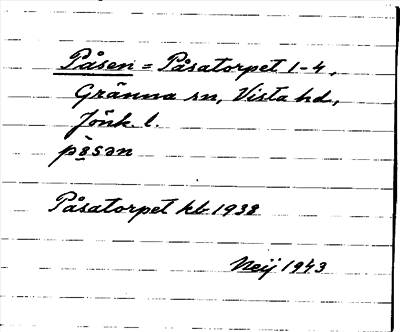 Påsen = Påsatorpet 1-4,
Gränna sn, Vista hd,
Jönk. l.
på̀sən
Påsatorpet kb 1938
Neij 1943